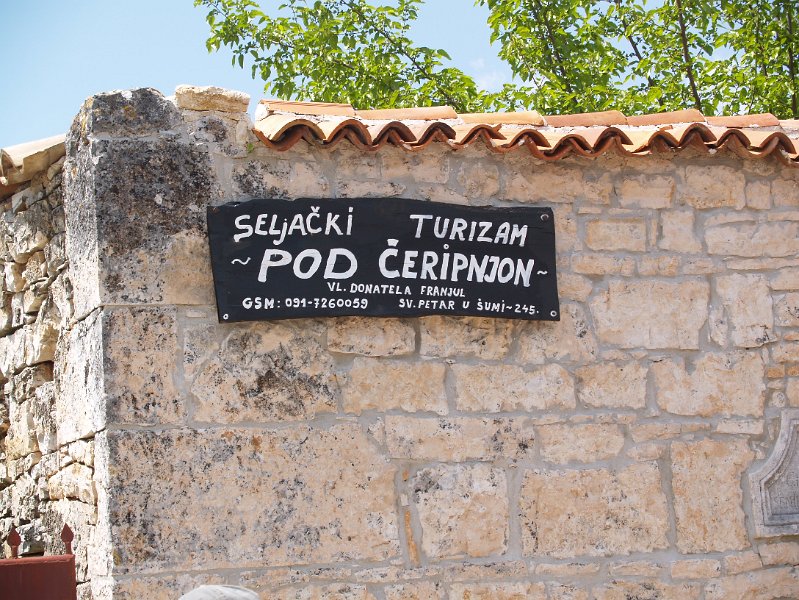 SELjAČKI TURIZAM
~ POD ČERIPNJON ~
VL. DONATELA FRANJUL
GSM: 091-7260059 SV. PETAR U ŠUMI-245.